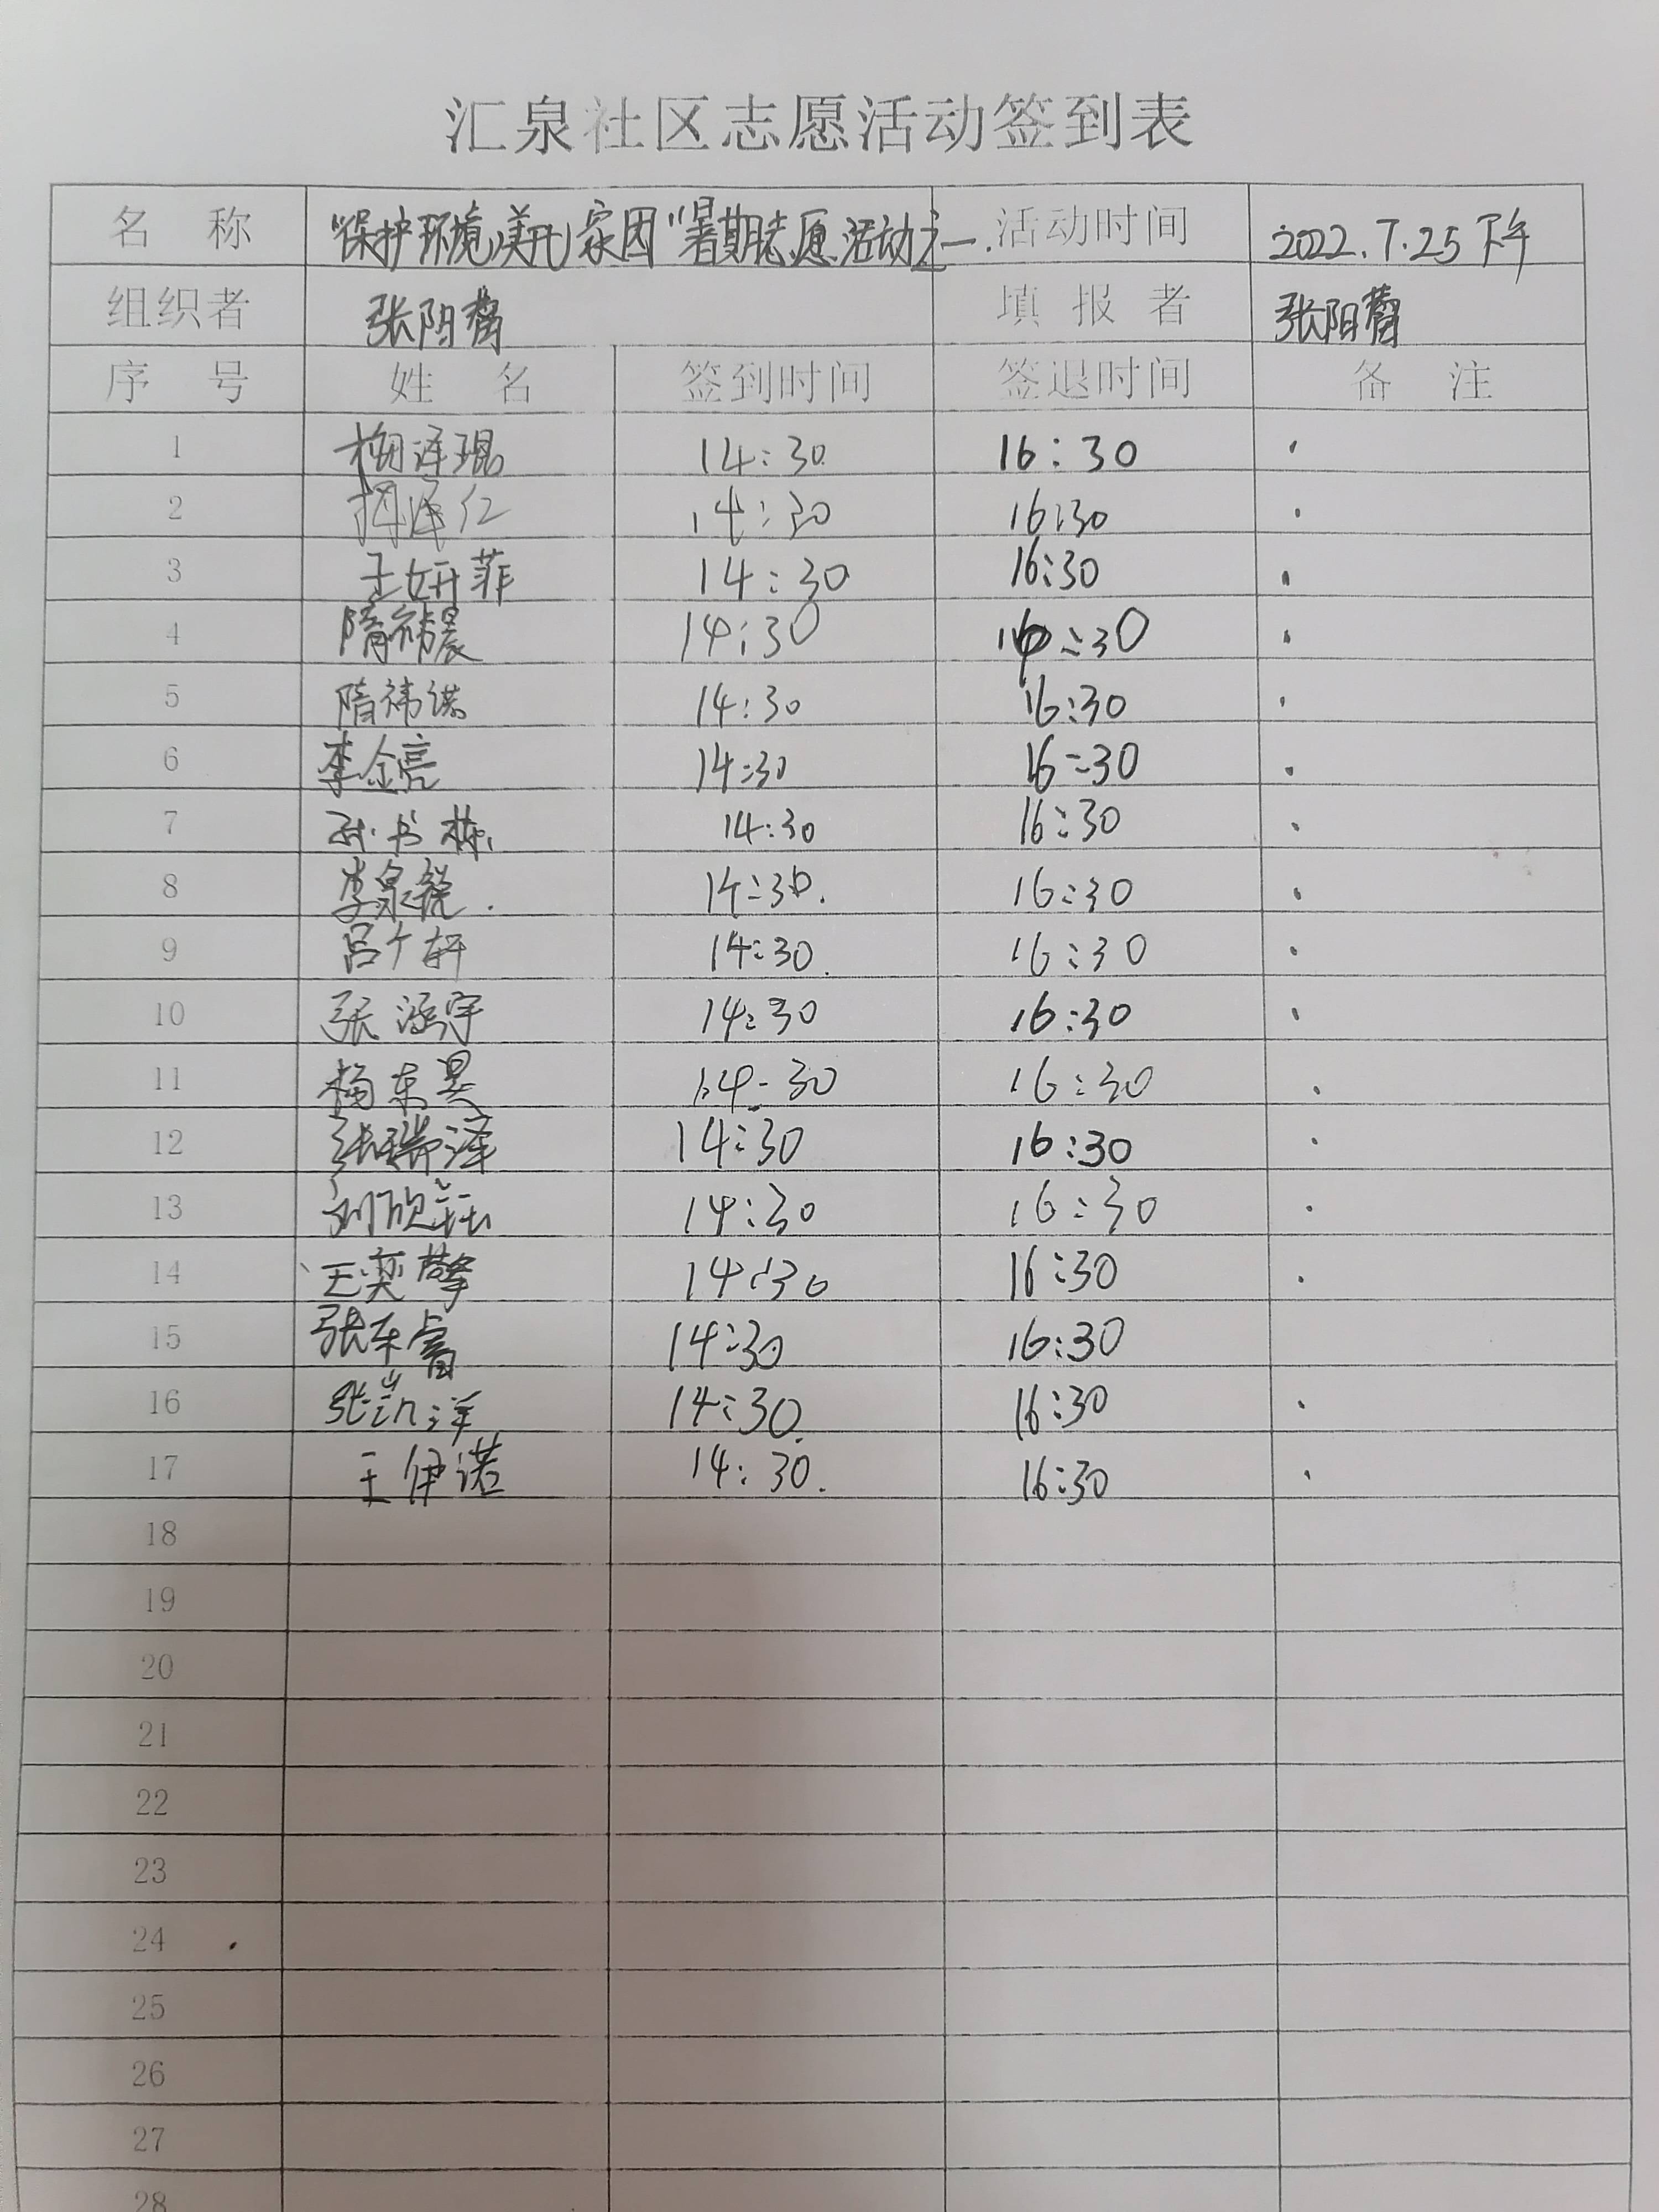 汇泉社区志愿活动签到表
名 称 "保护环境,美化家园"暑期志愿活动之一. 活动时间 2022.7.25下午
组织者 张阳 填报者 张阳
序 号 姓 名 签到时间 签退时间 备 注
1 柳泽琨 14:30 16:30
2 泽仁 14:30 16:30
3 王妍菲 14:30 16:30
4 隋祎晨 14:30 16:30
5 隋祎诺 14:30 16:30
6 李金亮 14:30 16:30
7 孙书栋 14:30 16:30
8 李泉锐. 14:30. 16:30
9 吕个轩 14:30. 16:30
10 张涵宇 14:30 16:30
11 杨东昊 14:30 16:30
12 张瑞泽 14:30 16:30
13 刘欣 14:30 16:30
14 王奕擎 14:30 16:30
15 张车睿 14:30 16:30
16 张凯洋 14:30. 16:30
17 王伊诺 14:30. 16:30
18
19
20
21
22
23
24
25
26
27
28